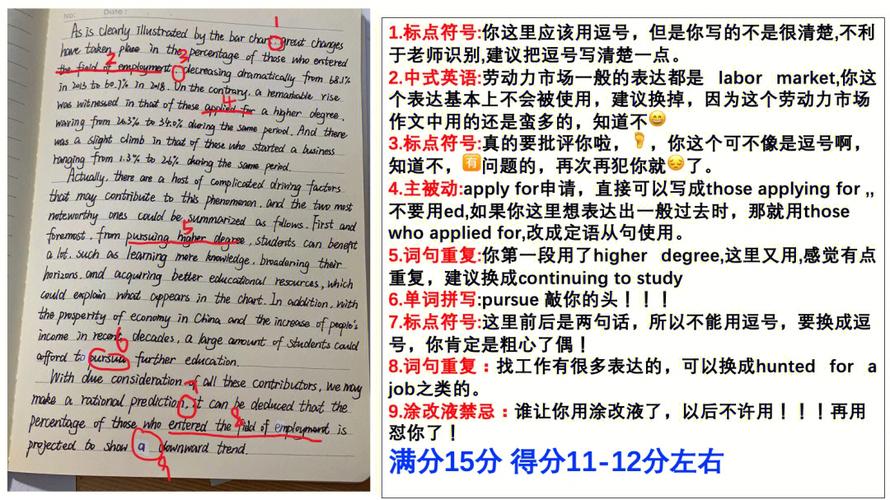 No: Date:
1
As is clearly illustrated by the bar chart, great changes
have taken place in the percentage of those who entered
2 3
the field of employment, decreasing dramatically from 68.1%
in 2013 to 60.7% in 2018. On the contrary, a remarkable rise
4
was witnessed in that of these applied for a higher degree.
waving from 26.3% to 34.0% during the same period. And there
was a slight climb in that of those who started a business
ranging from 1.3% to 2.6% during the same period.
Actually, there are a host of complicated driving factors
that may contribute to this phenomenon, and the two most
noteworthy ones could be summarized as follows. First and
5
foremost, from pursuing higher degree, students can benefit
a lot, such as learning more knowledge, broadening their
horizons, and acquiring better educational resources, which
could explain what appears in the chart. In addition, with
the prosperity of economy in China and the increase of people's
6
income in recent decades, a large amount of students could
afford to pursua further education.
With due consideration of all these contributors, we may
7
make a rational prediction, it can be deducted that the
8
percentage of those who entered the field of employment is
projected to show a downward trend.
9
1.标点符号:你这里应该用逗号，但是你写的不是很清楚,不利
于老师识别,建议把逗号写清楚一点。
2.中式英语:劳动力市场一般的表达都是 labor market,你这
个表达基本上不会被使用，建议换掉，因为这个劳动力市场
作文中用的还是蛮多的，知道不😄
3.标点符号:真的要批评你啦，🦶，你这个可不像是逗号啊，
知道不，🈶问题的，再次再犯你就😔了。
4.主被动:apply for申请，直接可以写成those applying for ,,
不要用ed,如果你这里想表达出一般过去时，那就用those
who applied for,改成定语从句使用。
5.词句重复:你第一段用了higher degree,这里又用,感觉有点
重复，建议换成continuing to study
6.单词拼写:pursue 敲你的头！！！
7.标点符号:这里前后是两句话，所以不能用逗号，要换成逗
号，你肯定是粗心了偶！
8.词句重复：找工作有很多表达的，可以换成hunted for a
job之类的。
9.涂改液禁忌：谁让你用涂改液了，以后不许用！！！再用
怼你了！
满分15分 得分11-12分左右